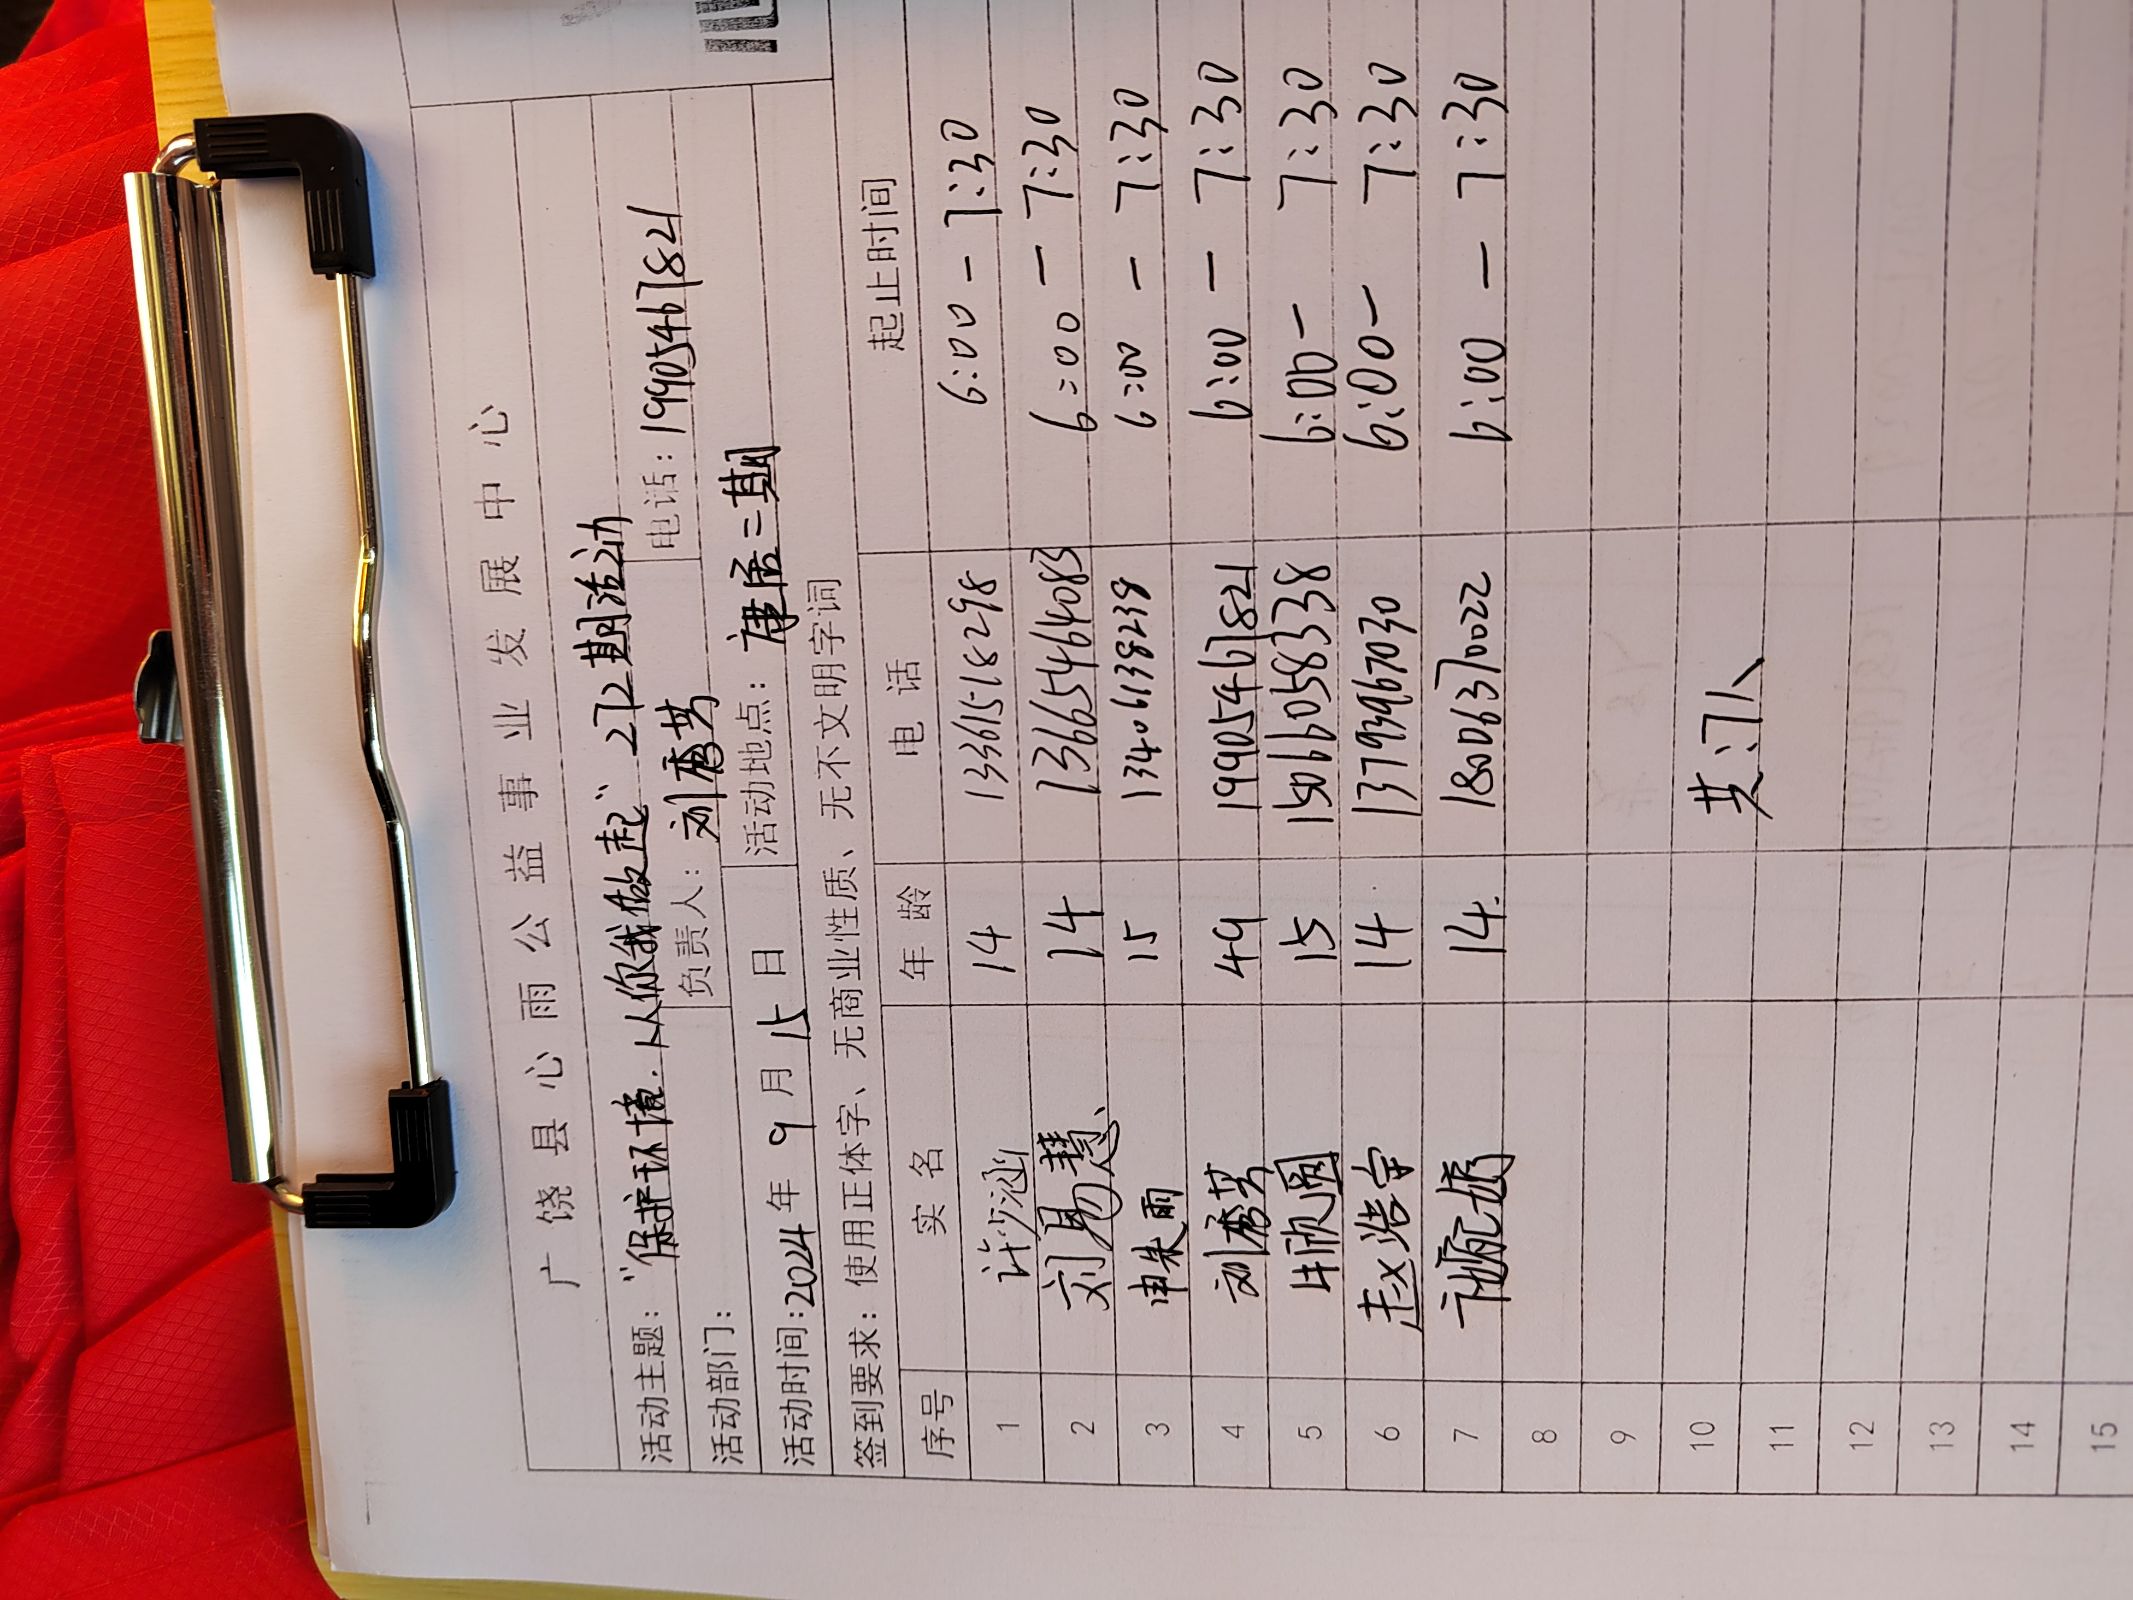 广饶县心雨公益事业发展中心
活动主题："保护环境.从你我做起"272期活动
活动部门： 负责人：刘秀芳 电话：19905467821
活动时间：2024年9月15日 活动地点：康居二期
签到要求：使用正体字、无商业性质、无不文明字词
序号 实名 年龄 电话 起止时间
1 许少涵 14 13361518298 6:00-7:30
2 刘易慧 14 13665464083 6:00-7:30
3 申朱雨 15 13406138239 6:00-7:30
4 刘秀芳 49 19905467821 6:00-7:30
5 牛欣圆 15 15066058338 6:00-7:30
6 赵浩宇 14 13793967030 6:00-7:30
7 14. 18006370022 6:00-7:30
8
9
10 共:7人
11
12
13
14
15